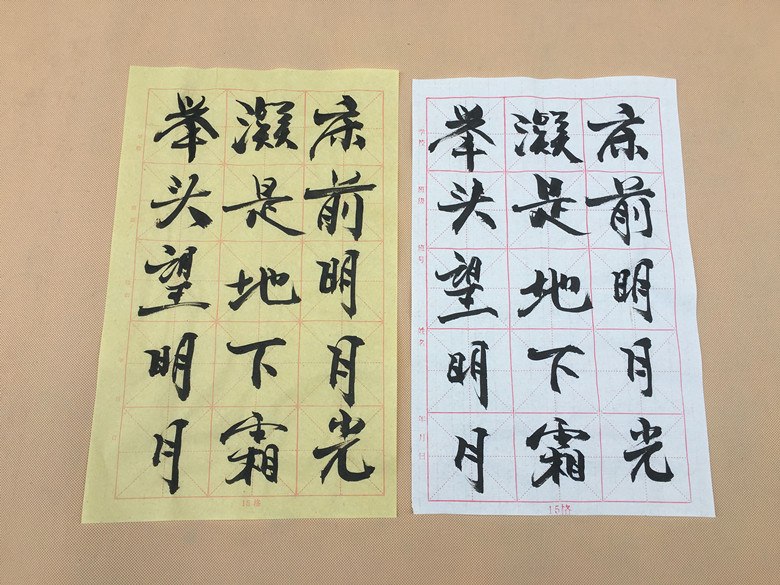 床前明月光
凝是地下霜
举头望明月
15格
床前明月光
凝是地下霜
举头望明月
学校
班级
姓名
年月日
15格